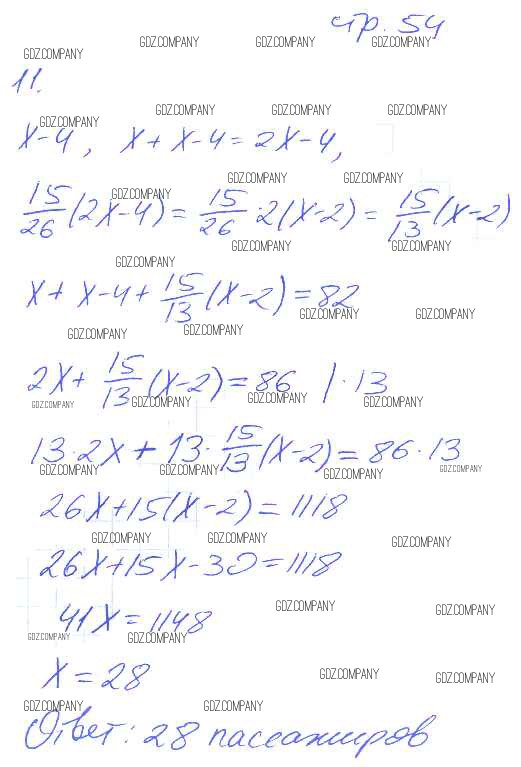 стр. 54
GDZ.COMPANY GDZ.COMPANY GDZ.COMPANY GDZ.COMPANY
11.
GDZ.COMPANY GDZ.COMPANY GDZ.COMPANY GDZ.COMPANY
x-4, x+x-4=2x-4,
GDZ.COMPANY GDZ.COMPANY GDZ.COMPANY
15/26(2x-4)=15/26·2(x-2)=15/13(x-2)
GDZ.COMPANY GDZ.COMPANY GDZ.COMPANY
x+x-4+15/13(x-2)=82
GDZ.COMPANY GDZ.COMPANY GDZ.COMPANY GDZ.COMPANY
2x+15/13(x-2)=86 |·13
GDZ.COMPANY GDZ.COMPANY GDZ.COMPANY GDZ.COMPANY
13·2x+13·15/13(x-2)=86·13
GDZ.COMPANY GDZ.COMPANY GDZ.COMPANY GDZ.COMPANY
26x+15(x-2)=1118
GDZ.COMPANY GDZ.COMPANY GDZ.COMPANY
26x+15x-30=1118
GDZ.COMPANY GDZ.COMPANY
41x=1148
GDZ.COMPANY GDZ.COMPANY
x=28
GDZ.COMPANY GDZ.COMPANY
GDZ.COMPANY GDZ.COMPANY
Ответ: 28 пассажиров